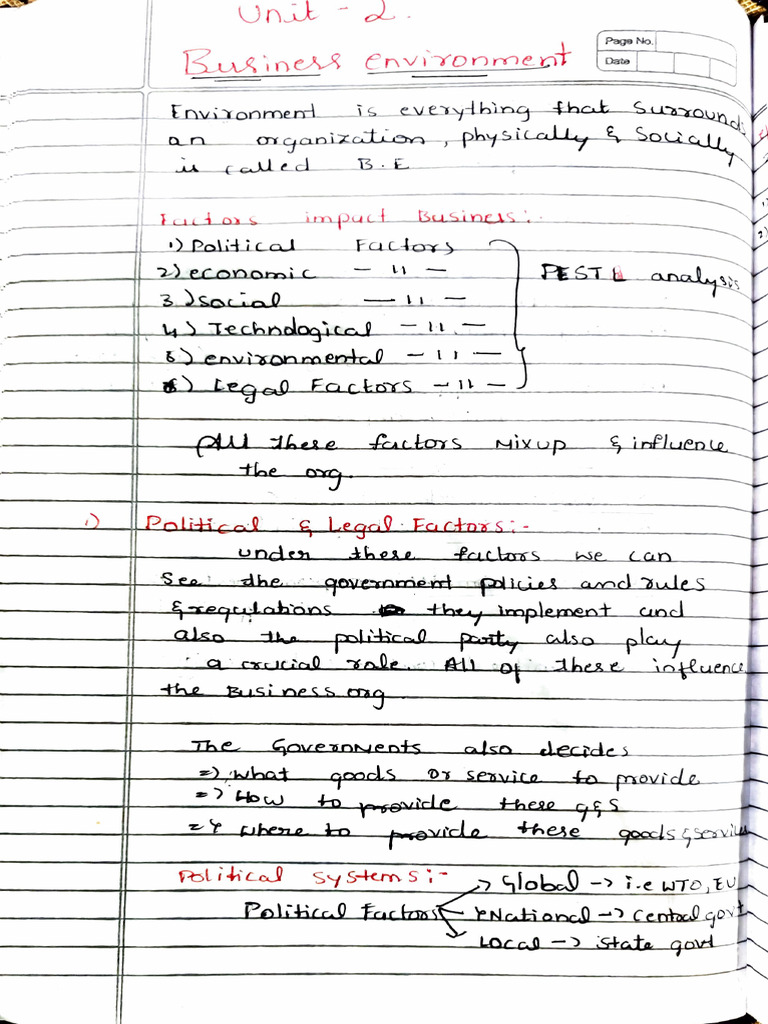 Unit - 2.
Business environment
Page No.
Date
Environment is everything that surrounds
an organization, physically & socially
is called B.E
Factors impact Business:-
1) Political Factors
2) economic - 11 -
3) social - 11 -
4) Technological - 11 -
5) environmental - 11 -
6) Legal Factors - 11 -
PESTL analysis
All these factors Mixup & influence
the org.
1) Political & Legal Factors:-
under these factors we can
see the government policies and rules
& regulations they implement and
also the political party also play
a crucial role. All of these influence
the Business org
The Governments also decides
=> what goods or service to provide
=> How to provide these G&S
=> where to provide these goods & services
Political systems:-
Political Factors
-> Global -> i.e WTO, EU
National -> Central govt
Local -> state govt